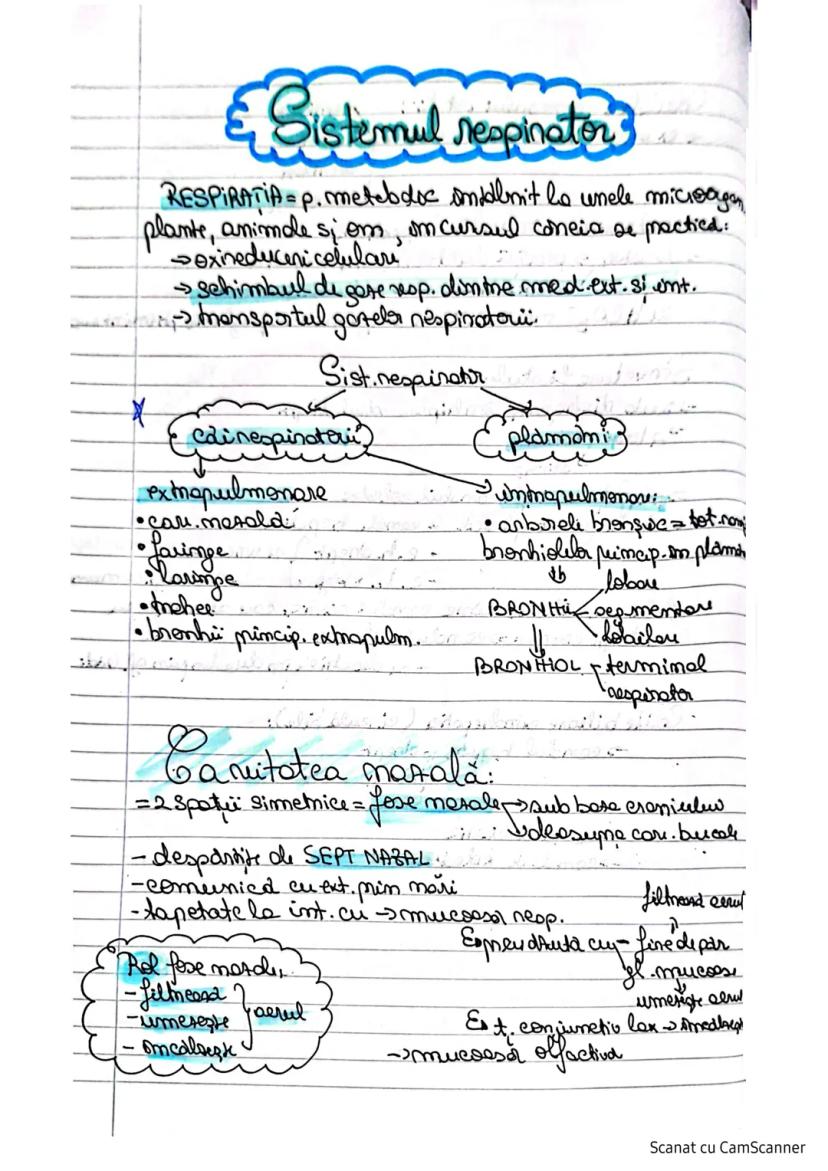 Sistemul respirator
RESPIRAȚIA = p. metabolic întâlnit la unele microorgan
plante, animale și om, în cursul căreia se practică:
→ oxireduceri celulare
→ schimbul de gaze resp. dintre med. ext. și int.
→ transportul gazelor respiratorii.
Sist. respirator
căi respiratorii
plămâni
extrapulmonare
• cav. nazală
• faringe
• laringe
• trahee
• bronhii princip. extrapulm.
intrapulmonare:
• arborele bronșic = tot
bronhiolelor princip. în plămân
BRONHII
lobare
segmentare
lobulare
BRONHIOL
terminal
respirator
Cavitatea nazală:
= 2 spații simetrice = fose nazale → sub baza craniului
→ deasupra cav. bucale
- despărțite de SEPT NAZAL
- comunică cu ext. prin nări
- tapetate la int. cu → mucoasă resp.
filtrează aerul
prevăzută cu - fire de păr
gl. mucoase
umezește aerul
țt. conjunctiv lax → încălzește
→ mucoasă olfactivă
Rol fose nazale,
- filtrează
- umezește
- încălzește
aerul
Scanat cu CamScanner